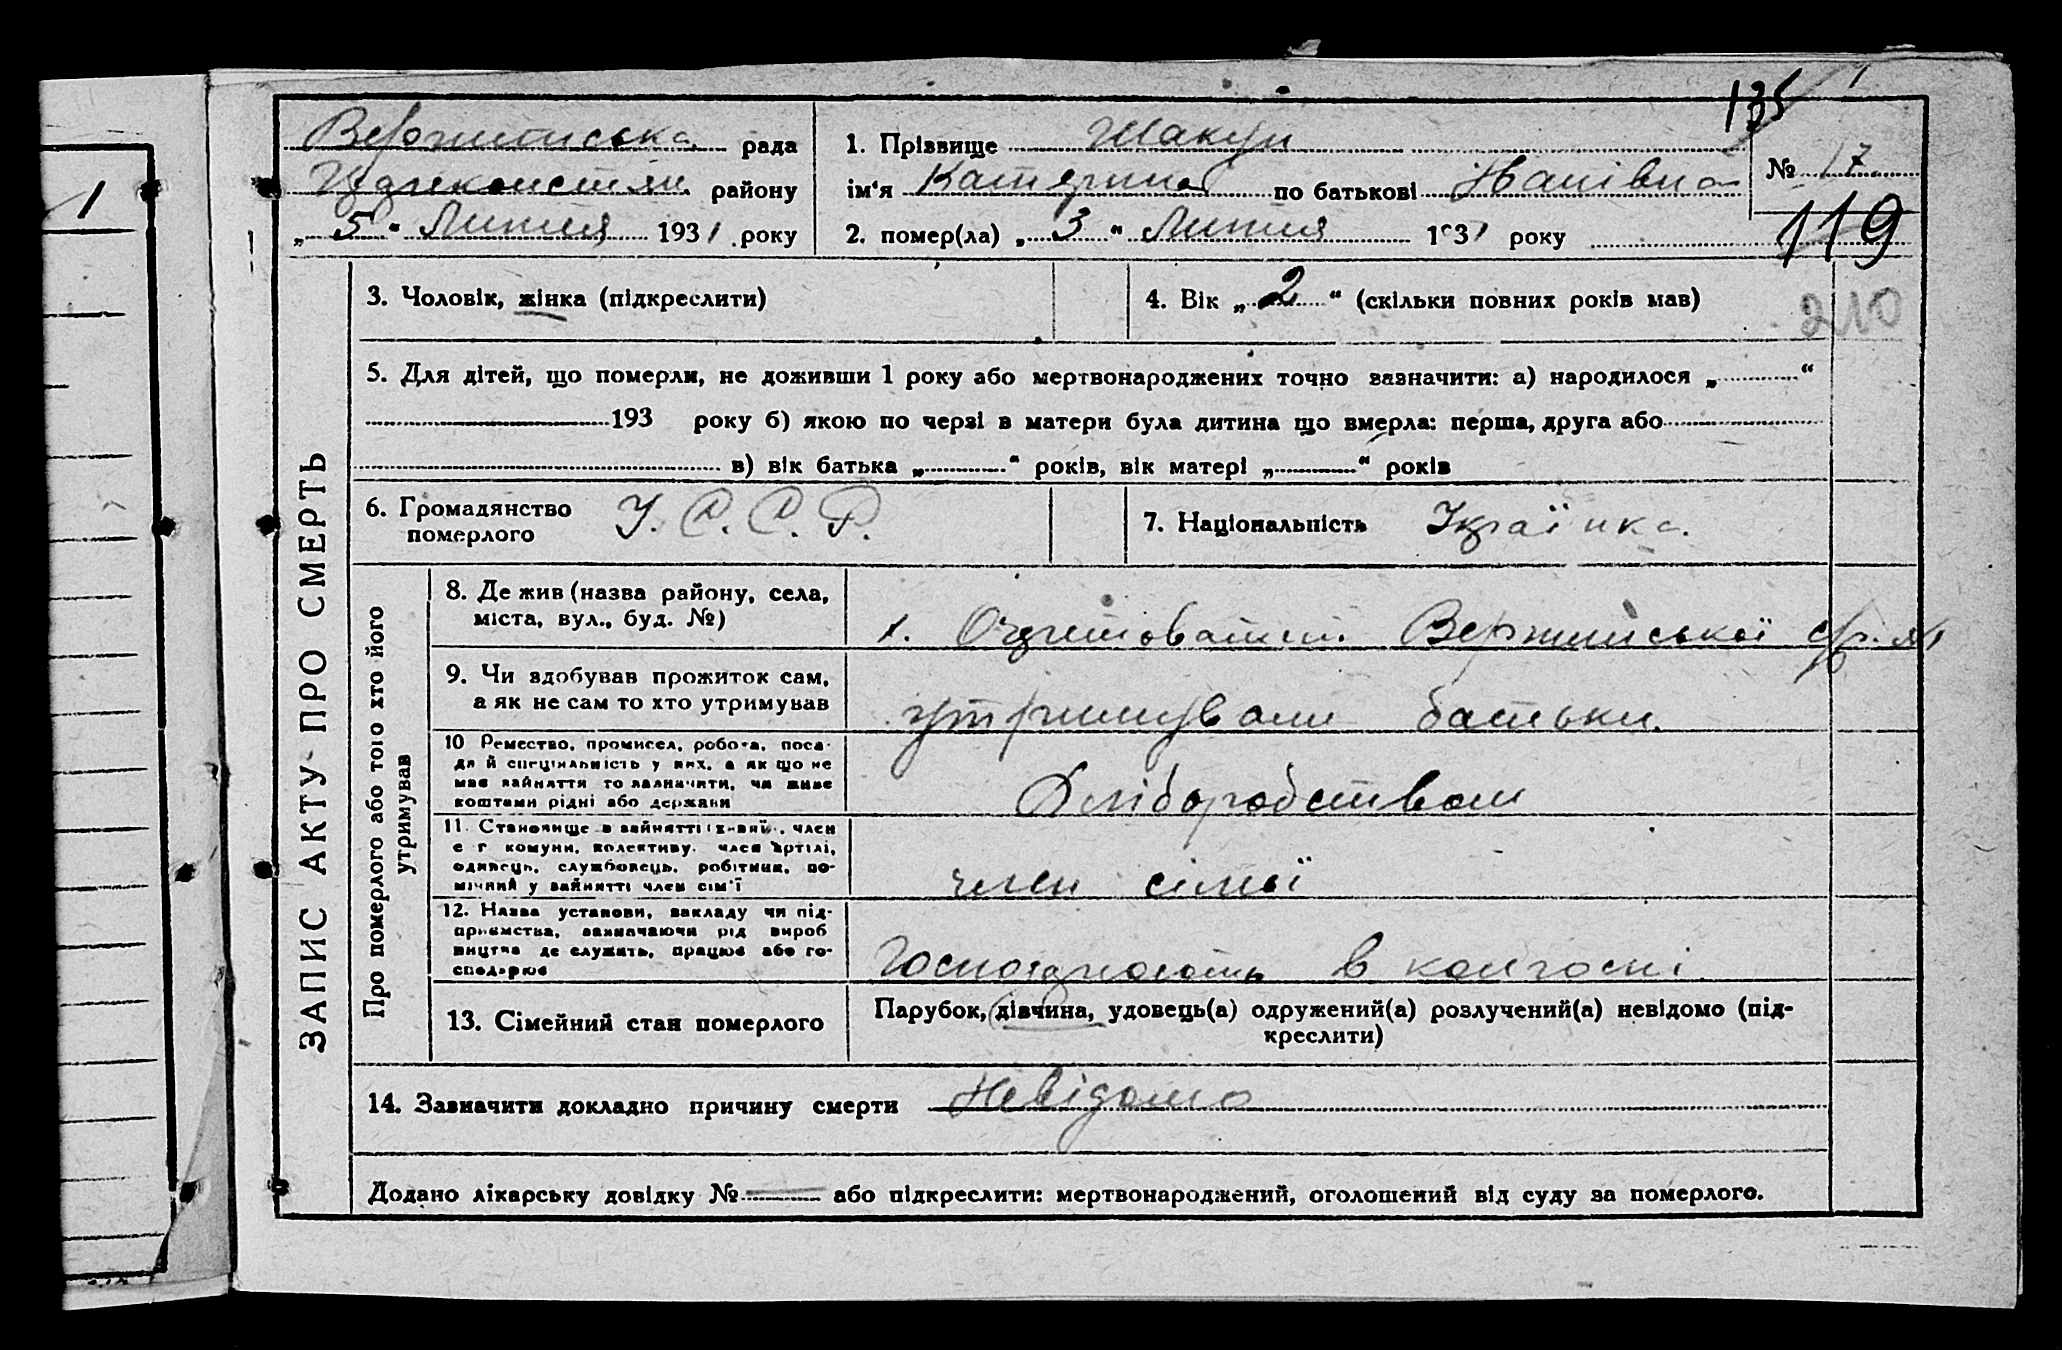 135
1
рада
1. Прізвище Шакун
№ 17
району
ім'я Катерина по батькові Іванівна
„ 5 “ Липня 1931 року
2. помер(ла) „ 3 “ Липня 1931 року
119
3. Чоловік, жінка (підкреслити)
4. Вік „ 2 “ (скільки повних років мав)
210
5. Для дітей, що померли, не доживши 1 року або мертвонароджених точно зазначити: а) народилося „ “
193 року б) якою по черзі в матери була дитина що вмерла: перша, друга або
в) вік батька „ “ років, вік матері „ “ років
6. Громадянство померлого У. С. С. Р.
7. Національність Українка
ЗАПИС АКТУ ПРО СМЕРТЬ
Про померлого або того хто його утримував
8. Де жив (назва району, села,
міста, вул., буд. №)
Вержинської
9. Чи здобував прожиток сам,
а як не сам то хто утримував
утримували батьки
10 Ремество, промисел, робота, поса-
да й спеціяльність у них, а як що не
має зайняття то зазначити, чи живе
коштами рідні або держави
Хліборобством
11. Становище в зайнятті член
комуни, колективу, член артілі,
одинець, службовець, робітник, по-
мічний у зайнятті член сім'ї
член сімьї
12. Назва установи, закладу чи під-
приємства, зазначаючи рід вироб
ництва де служить, працює або го-
сподарює
в колгоспі
13. Сімейний стан померлого
Парубок, дівчина, удовець(а) одружений(а) розлучений(а) невідомо (під-
креслити)
14. Зазначити докладно причину смерти Невідомо
Додано лікарську довідку № — або підкреслити: мертвонароджений, оголошений від суду за померлого.
1